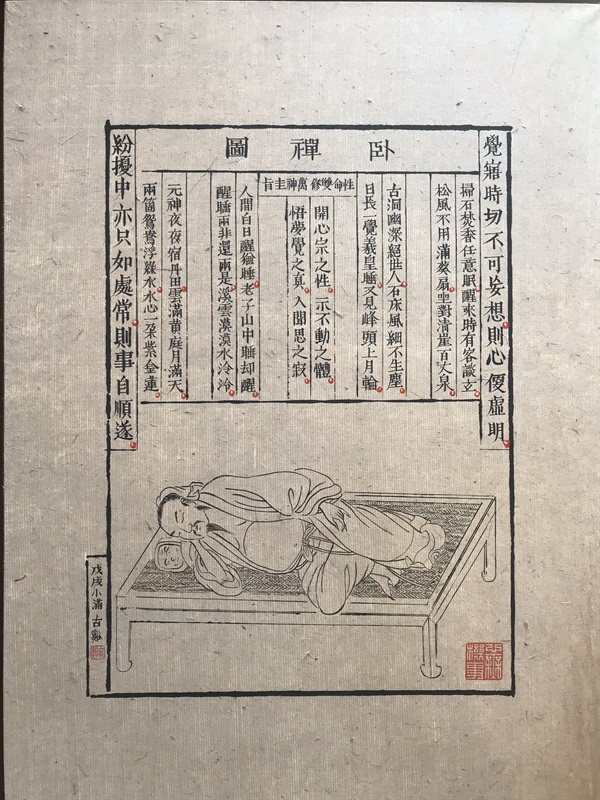 卧禪圖
覺寤時切不可妄想則心便虛明
掃石焚香任意眠醒來時有客談玄
松風不用蒲葵扇坐對清崖百丈泉
古洞幽深絕世人石床風細不生塵
日長一覺羲皇睡又見峰頭上月輪
性命雙修萬神圭旨
開心宗之性示不動之體
悟夢覺之真入聞思之寂
人間白日醒猶睡老子山中睡却醒
醒睡兩非還兩是溪雲漠漠水泠泠
元神夜夜宿丹田雲滿黃庭月滿天
兩箇鴛鴦浮綠水水心一朵紫金蓮
紛擾中亦只如處常則事自順遂
戊戌小滿 古